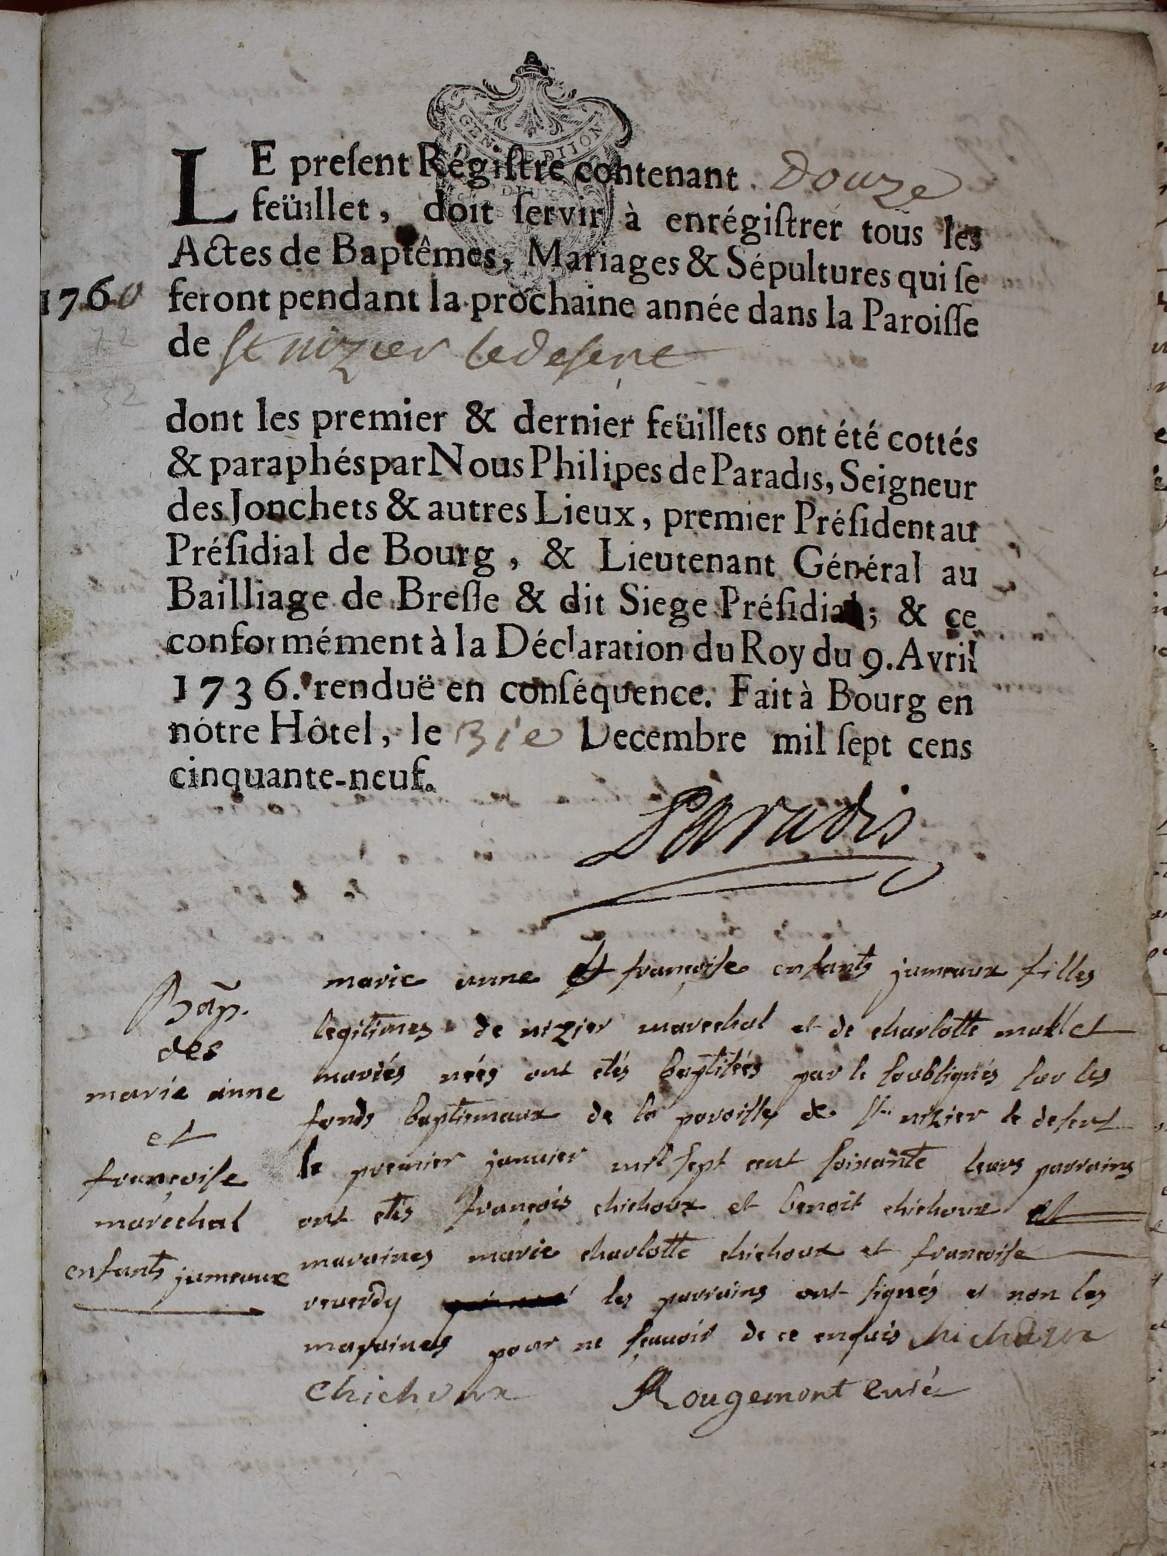 GEN. DE DIJON
LE presentRégistre contenant Douze
feüillet, doit servir à enrégistrer tous les
Actes de Baptêmes, Mariages & Sépultures qui se
1760
feront pendant la prochaine année dans la Paroisse
de St nizier le desert
dont les premier & dernier feüillets ont été cottés
& paraphés par Nous Philipes de Paradis, Seigneur
des Jonchets & autres Lieux, premier Président au
Présidial de Bourg, & Lieutenant Général au
Bailliage de Bresse & dit Siege Présidial; & ce
conformément à la Déclaration du Roy du 9. Avril
1736. renduë en conséquence. Fait à Bourg en
nôtre Hôtel, le 31e Decembre mil sept cens
cinquante-neuf.
Paradis
Bap.
des
marie anne
et
françoise
marechal
enfants jumeaux
marie anne et françoise enfants jumeaux filles
legitimes de nizier marechal et de charlotte
mariés nées ont etés baptisées par le soubsignés sur les
fonds baptismaux de la paroisse de St nizier le desert
le premier janvier mil sept cent soixante leurs parrains
ont etés françois chichoux et benoit chichoux et
maraines marie charlotte chichoux et françoise
reverdy les parrains ont signés et non les
maraines pour ne sçavoir de ce enquis chichoux
chichoux Rougemont curé